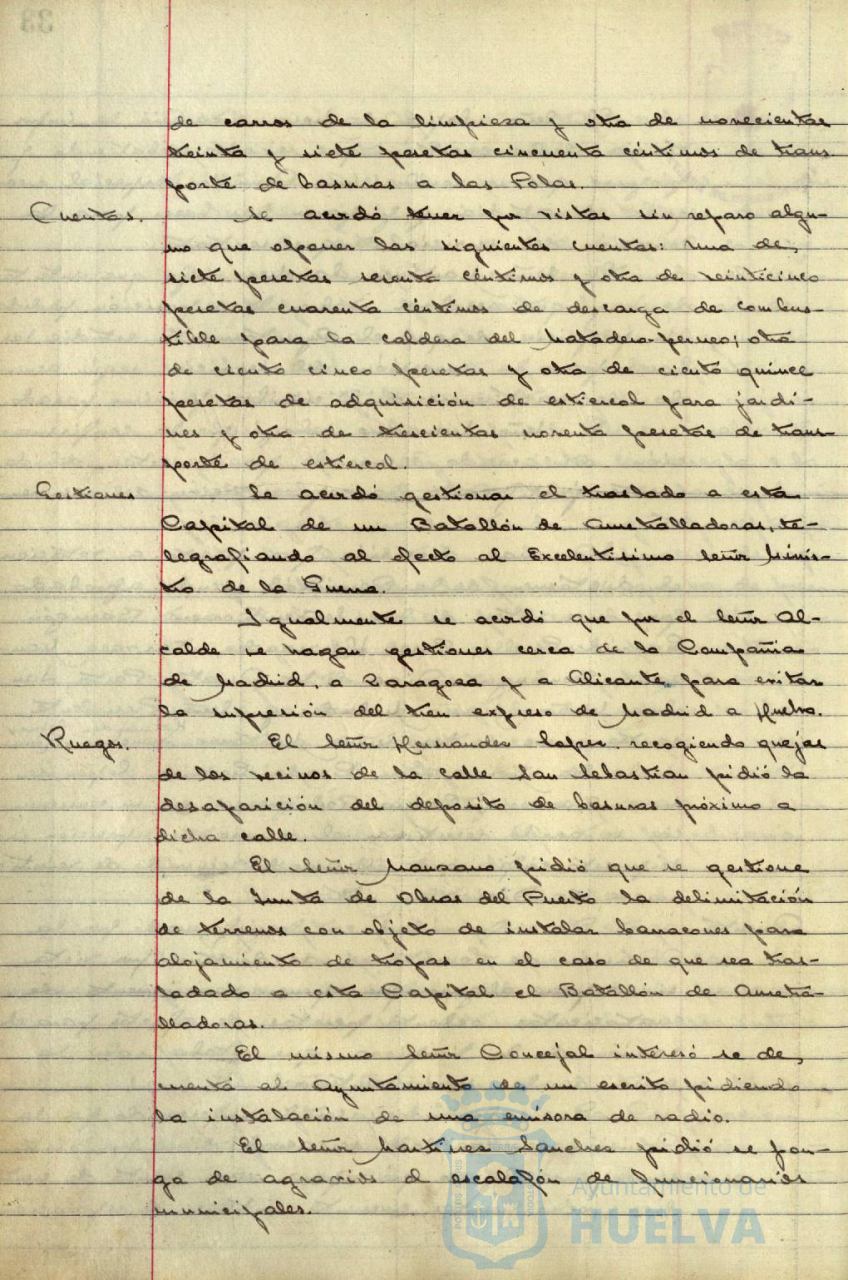 33
de carros de la limpieza y otra de novecientas
treinta y siete pesetas cincuenta céntimos de trans-
porte de basuras a las Polas.
Cuentas. Se acordó tener por vistas sin reparo algu-
no que oponer las siguientes cuentas: una de,
siete pesetas sesenta céntimos y otra de veinticinco
pesetas cuarenta céntimos de descarga de combus-
tible para la caldera del Matadero-perneo; otra
de ciento cinco pesetas y otra de ciento quince
pesetas de adquisición de estiercol para jardi-
nes y otra de trescientas noventa pesetas de trans-
porte de estiercol.
Gestiones Se acordó gestionar el traslado a esta
Capital de un Batallón de Ametralladoras, te-
legrafiando al efecto al Excelentisimo Señor Minis-
tro de la Guerra.
Igualmente se acordó que por el Señor Al-
calde se hagan gestiones cerca de la Compañia
de Madrid, a Zaragoza y a Alicante, para evitar
la supresión del tren expreso de Madrid a Huelva.
Ruegos. El Señor Hernandez Lopez, recogiendo quejas
de los vecinos de la calle San Sebastian pidió la
desaparición del deposito de basuras próximo a
dicha calle.
El Señor Manzano pidió que se gestione
de la Junta de Obras del Puerto la delimitación
de terrenos con objeto de instalar barracones para
alojamiento de tropas en el caso de que sea tras-
ladado a esta Capital el Batallón de Ametra-
lladoras.
El mismo Señor Concejal interesó se de,
cuenta al Ayuntamiento de un escrito pidiendo
la instalación de una emisora de radio.
El Señor Martinez Sanchez pidió se pon-
ga de agravios el escalafón de funcionarios
municipales.
Ayuntamiento de
HUELVA